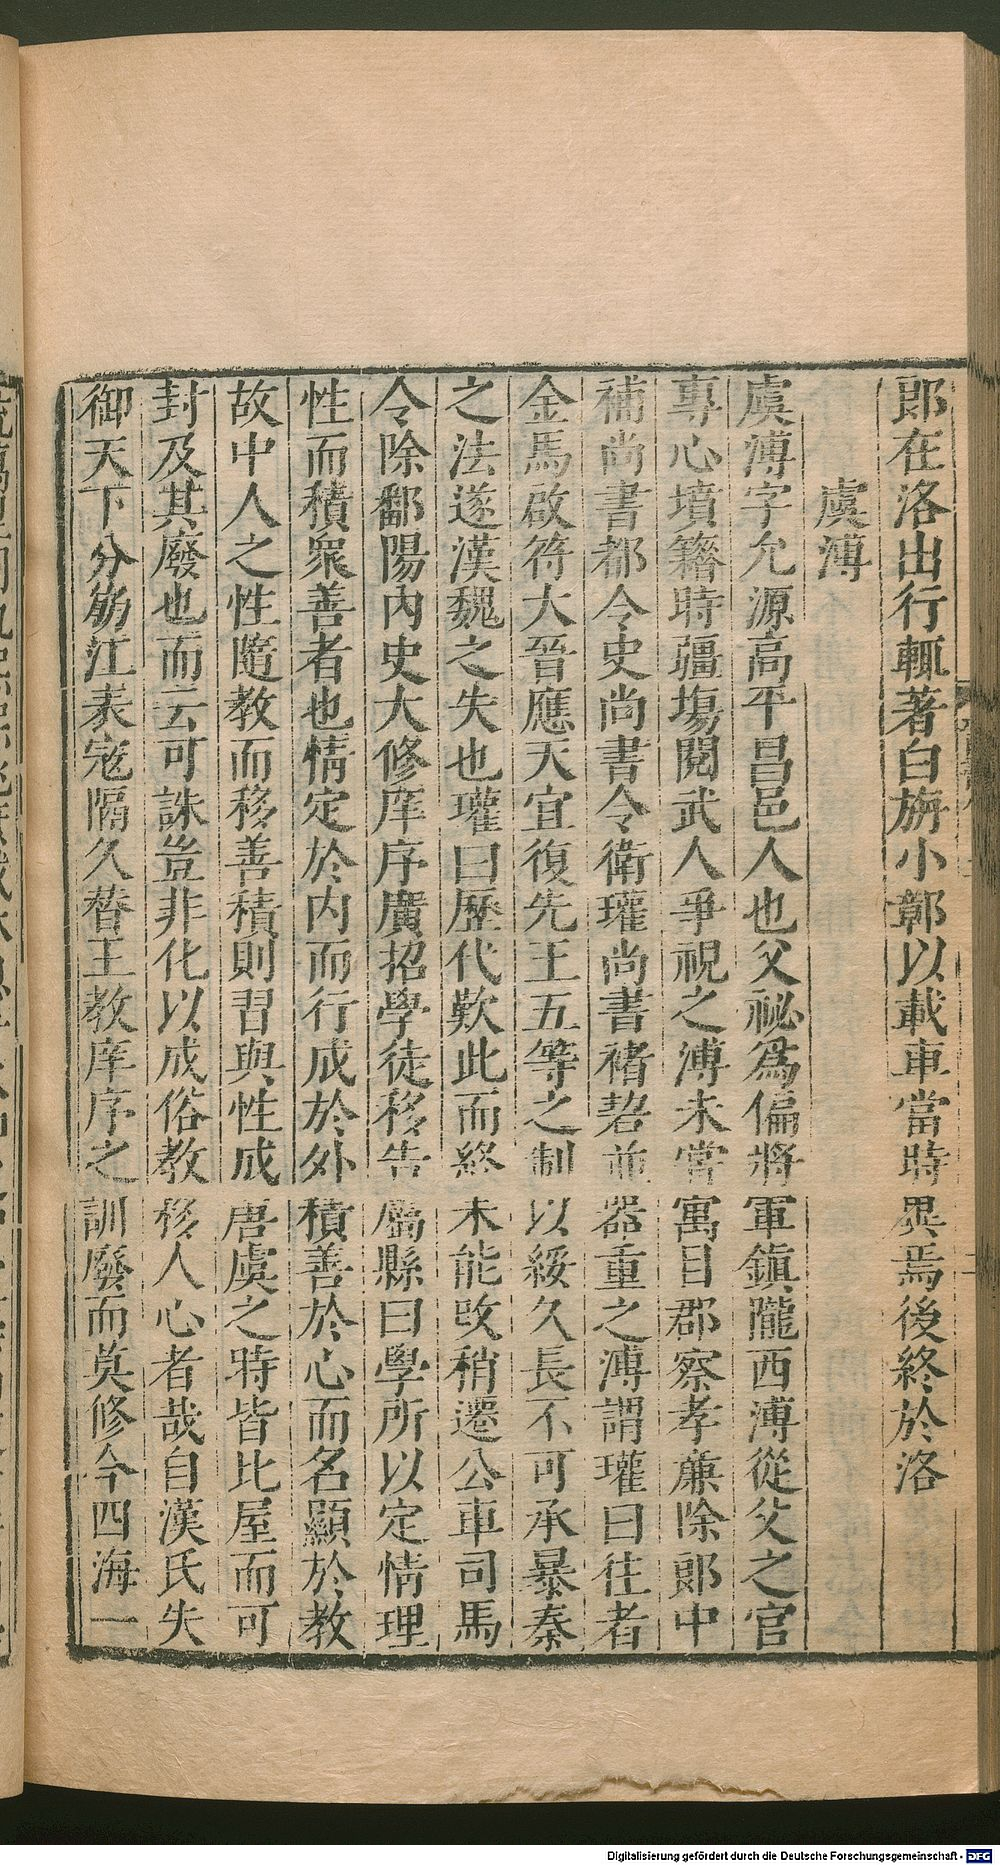 郎在洛出行輒著白旃小鄣以載車當時異焉後終於洛
虞溥
虞溥字允源高平昌邑人也父祕爲偏將軍鎮隴西溥從父之官
專心墳籍時疆埸閱武人爭視之溥未嘗寓目郡察孝廉除郎中
補尚書都令史尚書令衛瓘尚書褚䂮並器重之溥謂瓘曰往者
金馬啟符大晉應天宜復先王五等之制以綏久長不可承暴秦
之法遂漢魏之失也瓘曰歷代歎此而終未能改稍遷公車司馬
令除鄱陽內史大修庠序廣招學徒移告屬縣曰學所以定情理
性而積衆善者也情定於內而行成於外積善於心而名顯於教
故中人之性隨教而移善積則習與性成唐虞之時皆比屋而可
封及其廢也而云可誅豈非化以成俗教移人心者哉自漢氏失
御天下分崩江表寇隔久替王教庠序之訓廢而莫修今四海一
Digitalisierung gefördert durch die Deutsche Forschungsgemeinschaft - DFG